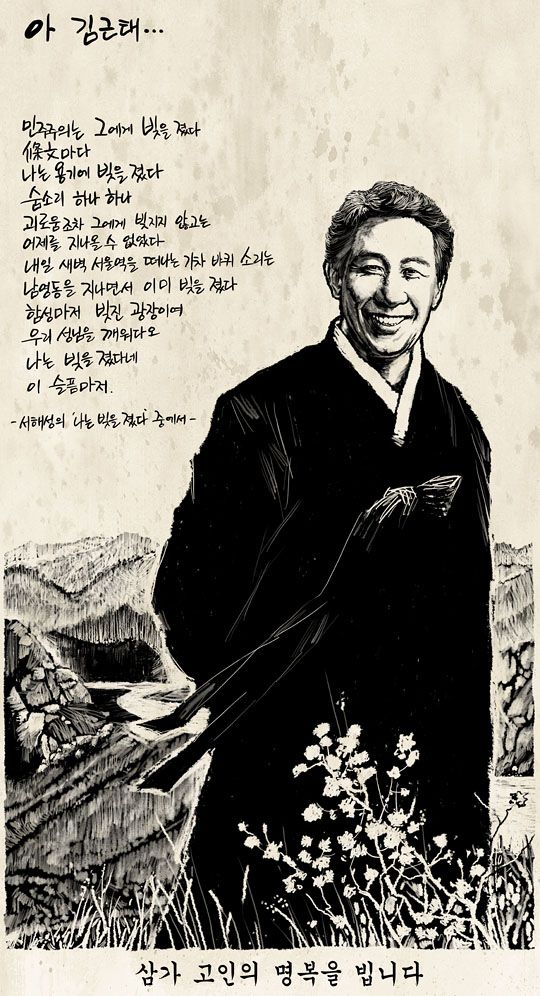 아 김근태...
민주주의는 그에게 빚을 졌다
條文마다
나는 용기에 빚을 졌다
숨소리 하나 하나
괴로움조차 그에게 빚지지 않고는
어제를 지나올 수 없었다
내일 새벽 서울역을 떠나는 기차 바퀴 소리는
남영동을 지나면서 이미 빚을 졌다
함성마저 빚진 광장이여
우리 선님을 깨워다오
나는 빚을 졌다네
이 슬픔마저.
- 서해성의 '나는 빚을 졌다' 중에서 -
삼가 고인의 명복을 빕니다